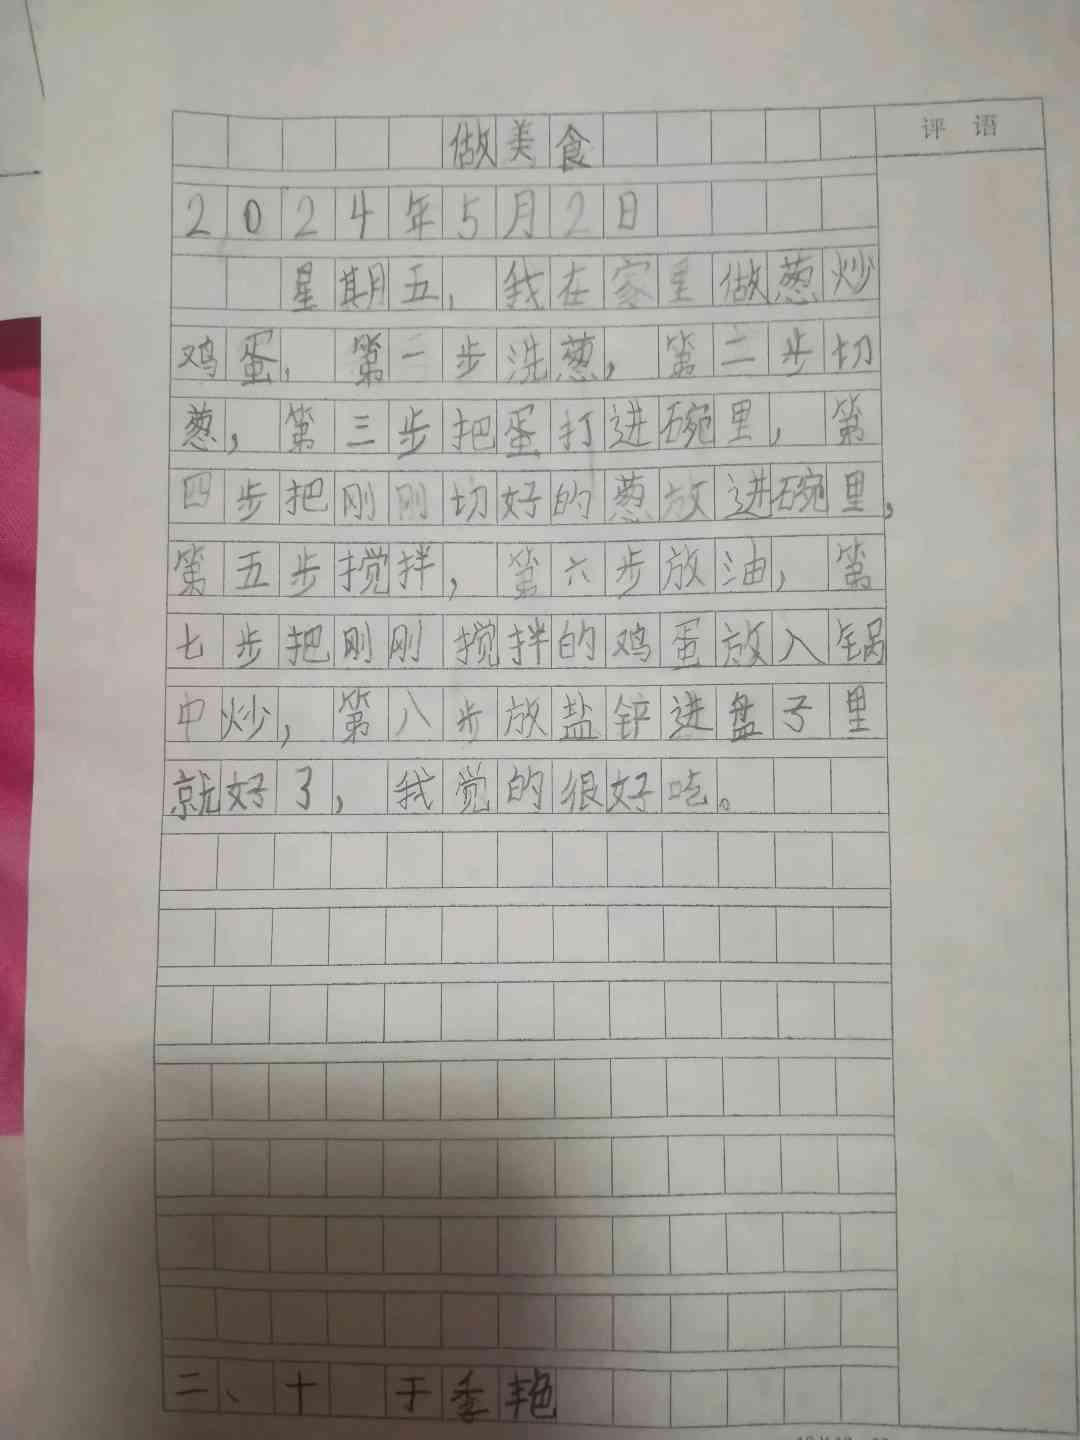 做美食
评语
2024年5月2日
星期五，我在家里做葱炒
鸡蛋，第一步洗葱，第二步切
葱，第三步把蛋打进碗里，第
四步把刚刚切好的葱放进碗里，
第五步搅拌，第六步放油，第
七步把刚刚搅拌的鸡蛋放入锅
中炒，第八步放盐铲进盘子里
就好了，我觉的很好吃。
二、十 于季艳